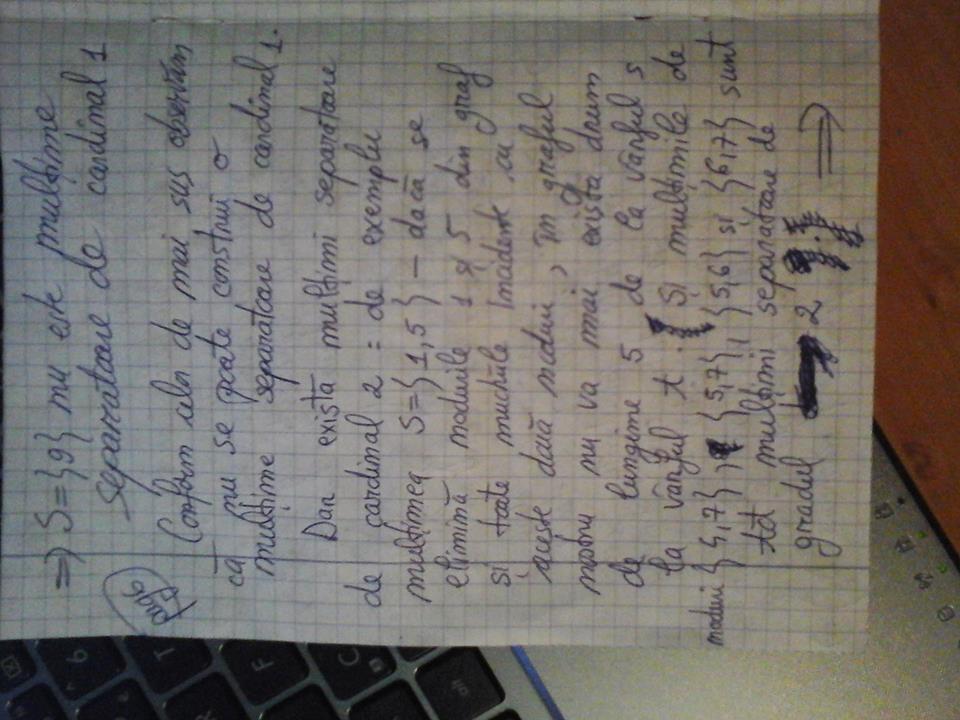 => S={9} nu este mulțime
separatoare de cardinal 1
pag 6
Conform celor de mai sus observăm
că nu se poate construi o
mulțime separatoare de cardinal 1.
Dar există mulțimi separatoare
de cardinal 2 : de exemplu
mulțimea S={1,5} – dacă se
elimină nodurile 1 și 5 din graf
și toate muchiile incidente cu
aceste două noduri, în graful
nostru nu va mai exista drum
de lungime 5 de la vârful s
la vârful t. Și mulțimile de
noduri {4,7}, {5,7}, {5,6} și {6,7} sunt
tot mulțimi separatoare de
gradul 2 =>
T
6
F
C
alt